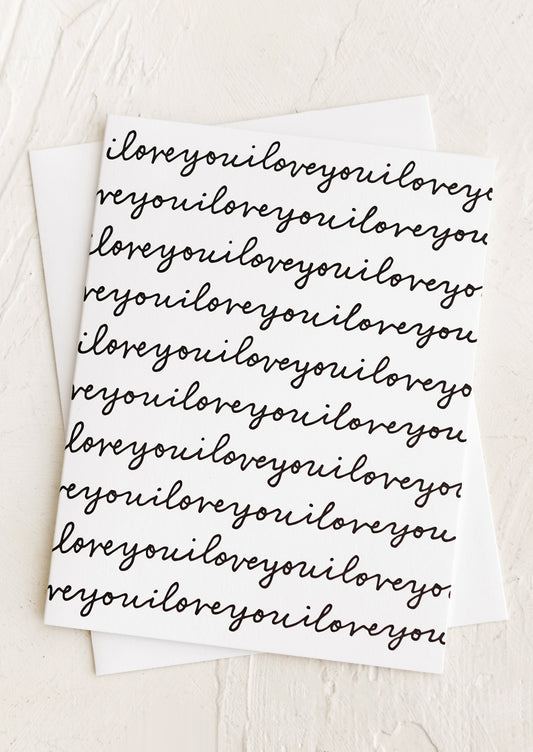 iloveyouiloveyouiloveyo
veyouiloveyouiloveyou
iloveyouiloveyouiloveyo
veyouiloveyouiloveyou
iloveyouiloveyouiloveyo
veyouiloveyouiloveyou
loveyouiloveyouiloveyo
veyouiloveyouiloveyou
loveyouiloveyouiloveyo
veyouiloveyouiloveyou